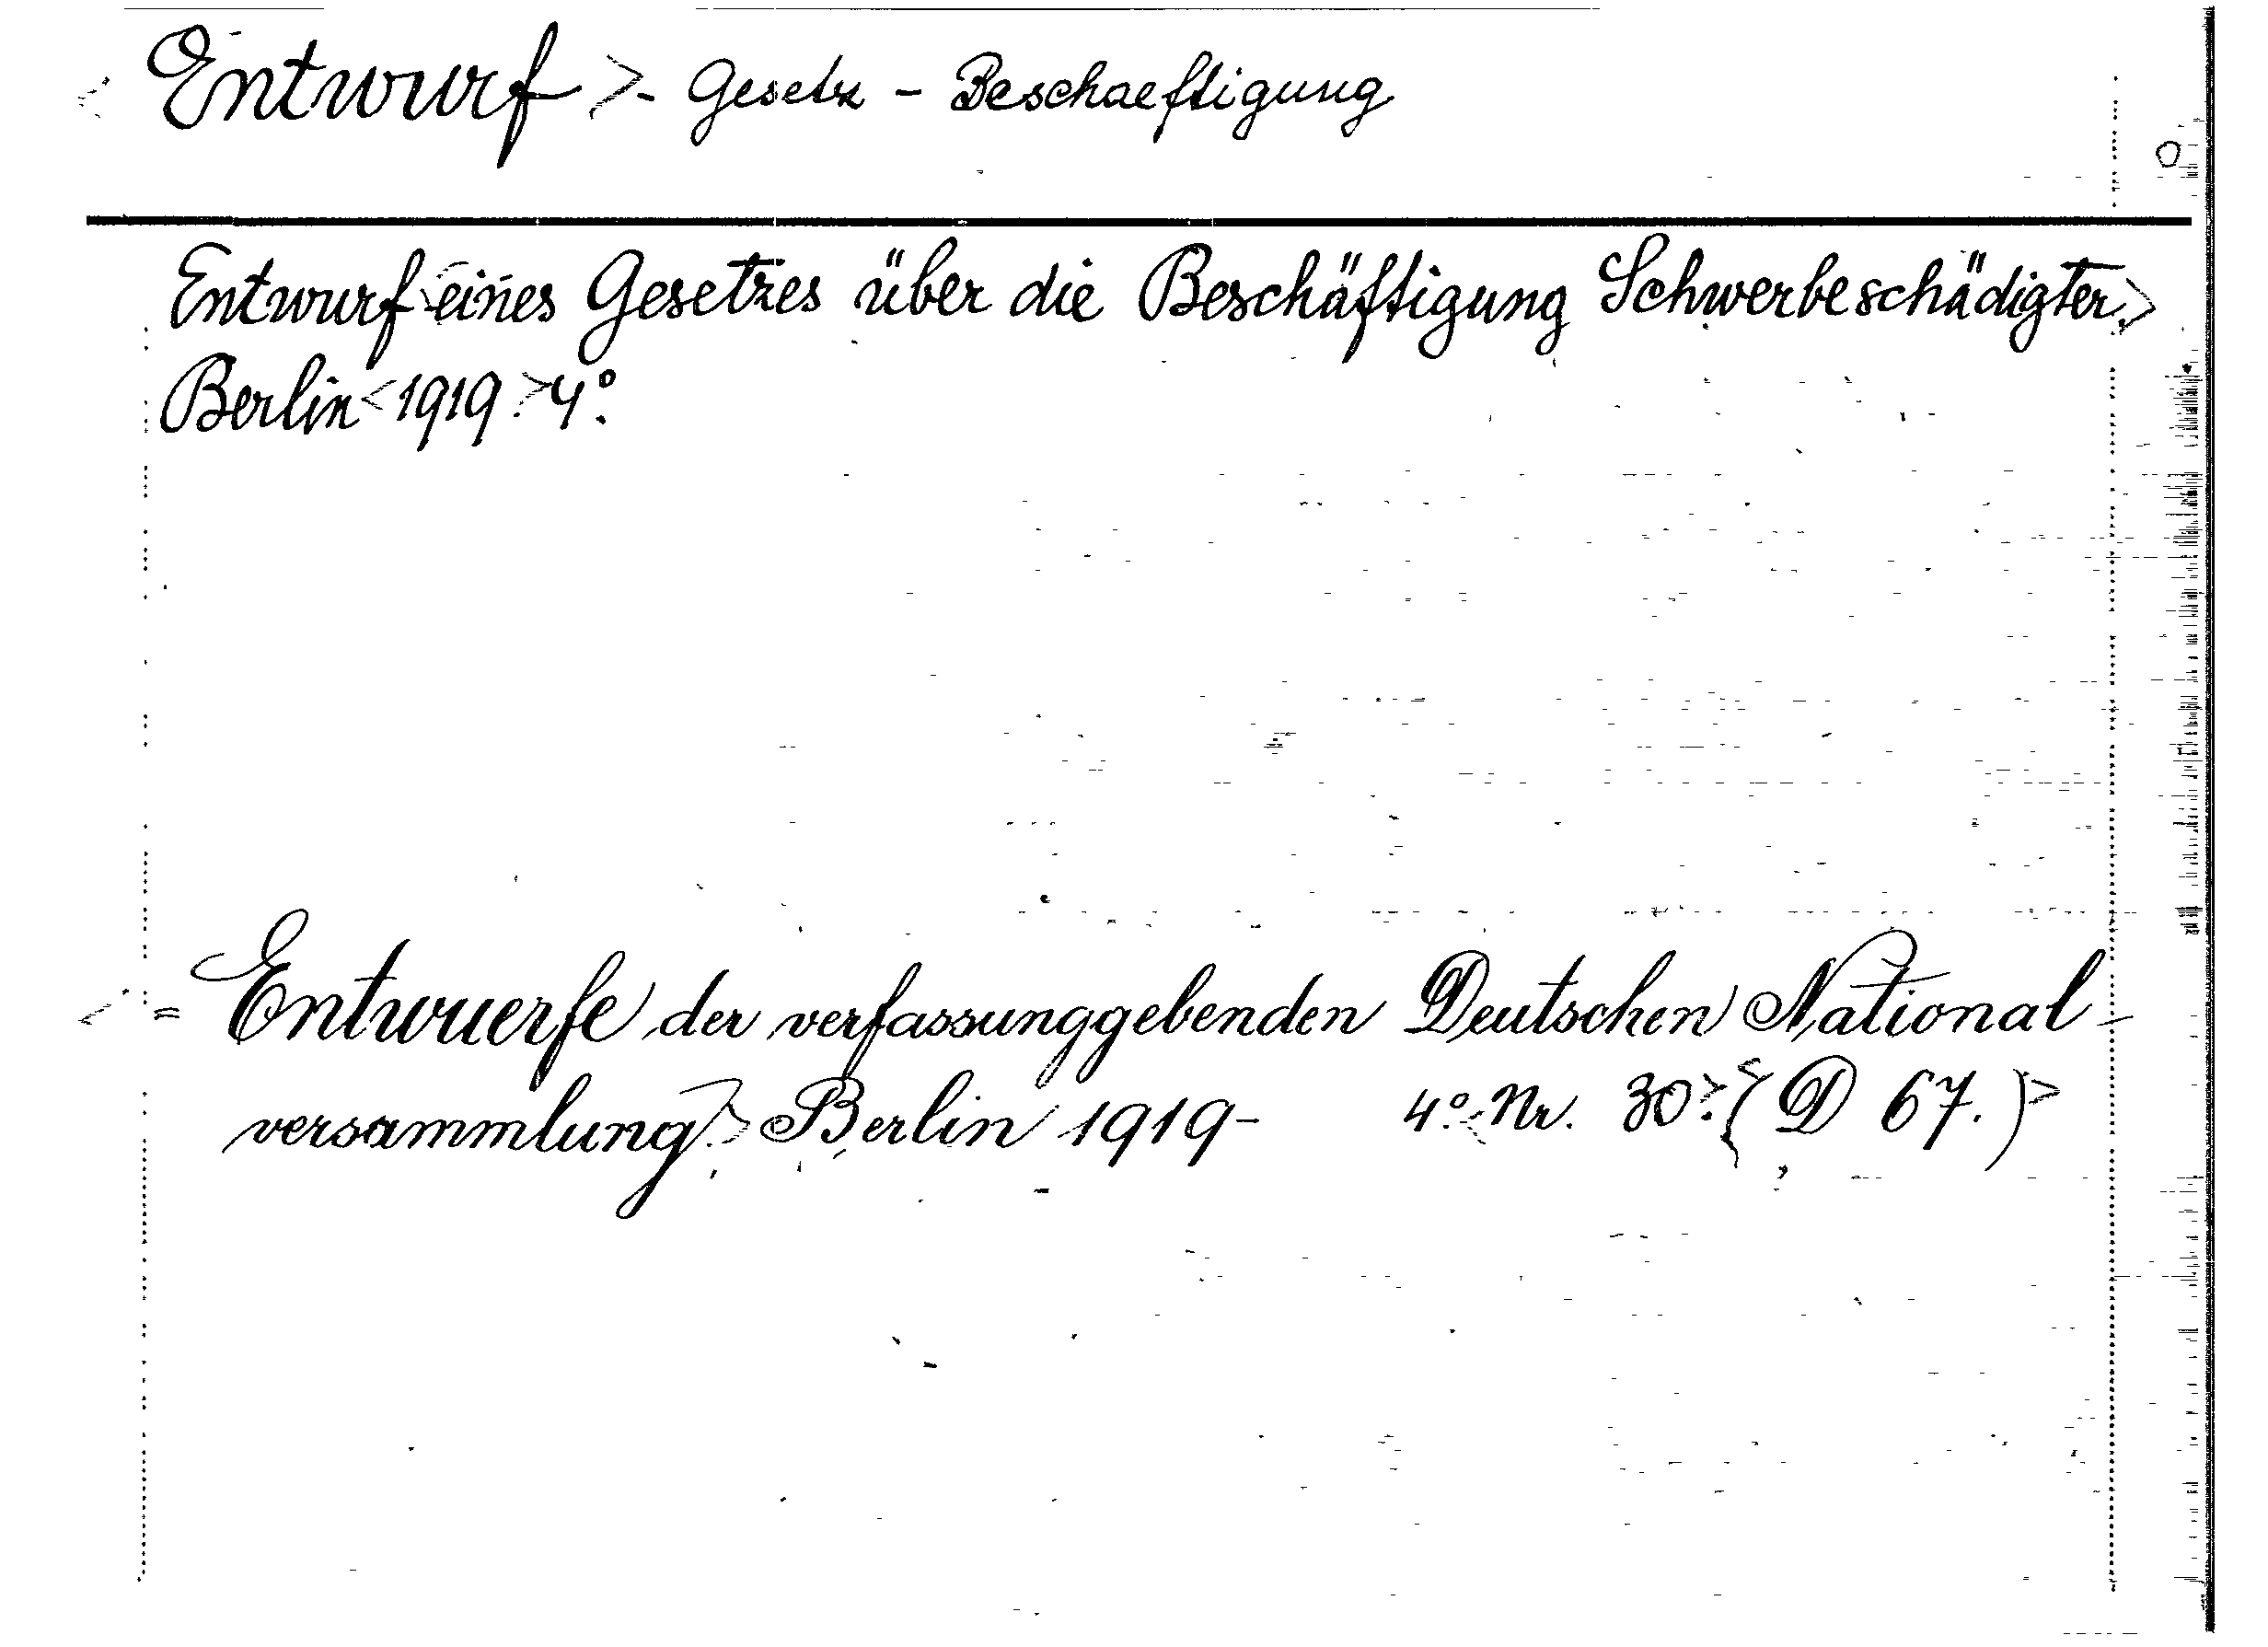 < Entwurf > - Gesetz - Beschaeftigung
Entwurf <eines Gesetzes über die Beschäftigung Schwerbeschädigter.>
Berlin <1919.> 4°.
< = Entwuerfe der verfassunggebenden Deutschen National-
versammlung.> Berlin 1919- 4°. <Nr. 30.> <(D 67.)>